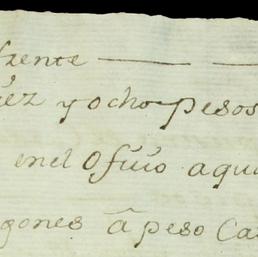 frente
iez y ocho pesos
en el Ofizio aqu
gones â peso Ca